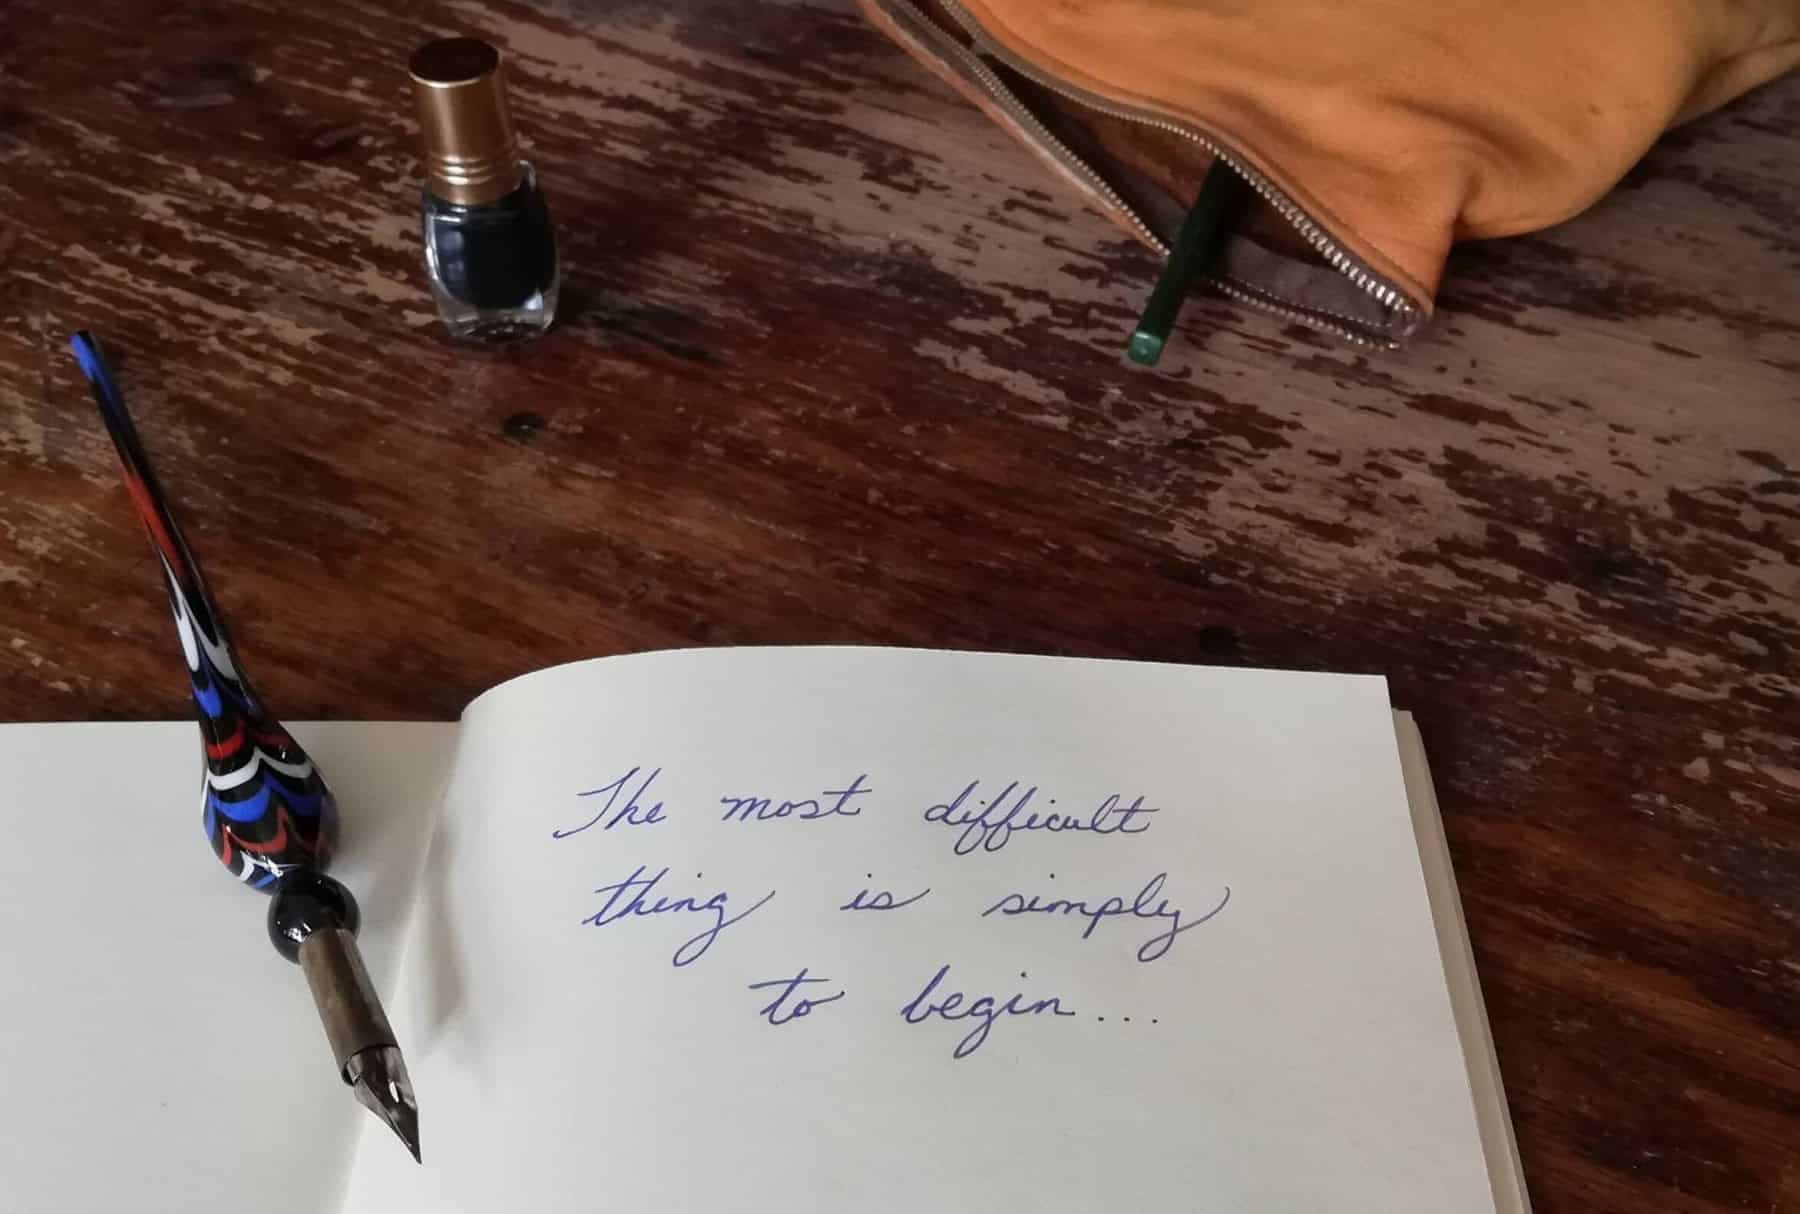 The most difficult
thing is simply
to begin...